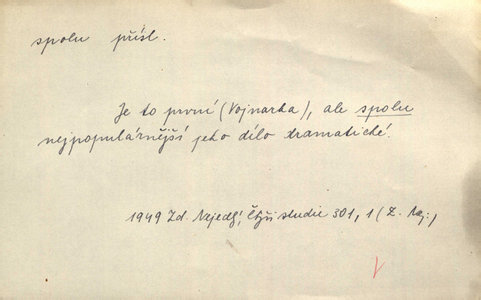 spolu přísl.
Je to první (Vojnarka), ale spolu
nejpopulárnější jeho dílo dramatické.
1949 Zd. Nejedlý, Čtyři studie 301, 1 (Z.